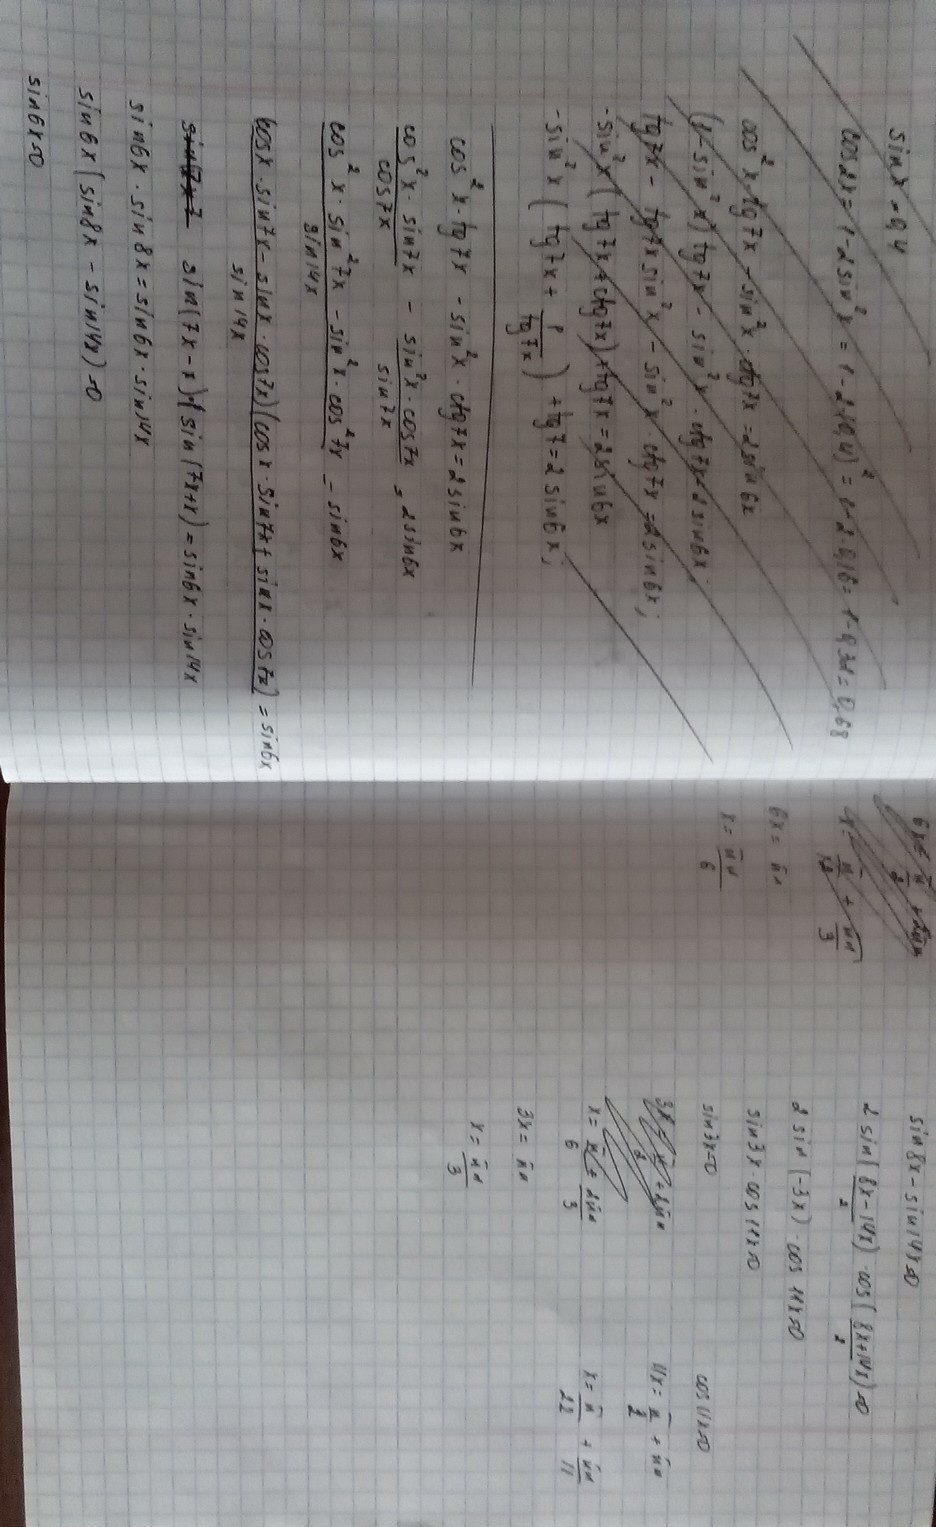 sin x = 0,4
cos2x = 1 - 2 sin² x = 1 - 2·(0,4)² = 1 - 2·0,16 = 1 - 0,32 = 0,68
cos² x · tg 7x - sin² x · ctg 7x = 2 sin 6x
(1 - sin² x) tg 7x - sin² x · ctg 7x = 2 sin 6x;
tg 7x - tg 7x sin² x - sin² x ctg 7x = 2 sin 6x;
- sin² x (tg 7x + ctg 7x) + tg 7x = 2 sin 6x
- sin² x (tg 7x + 1/tg 7x) + tg 7 = 2 sin 6x;
cos² x · tg 7x - sin² x · ctg 7x = 2 sin 6x
cos² x · sin 7x / cos 7x - sin² x · cos 7x / sin 7x = 2 sin 6x
cos² x · sin² 7x - sin² x · cos² 7x / sin 14x = sin 6x
(cos x · sin 7x - sin x · cos 7x)(cos x · sin 7x + sin x · cos 7x) / sin 14x = sin 6x
sin(7x - x)·(sin(7x + x) = sin 6x · sin 14x
sin 6x · sin 8x = sin 6x · sin 14x
sin 6x (sin 8x - sin 14x) = 0
sin 6x = 0
6x = πn
x = πn/6
sin 8x - sin 14x = 0
2 sin (8x - 14x)/2 · cos (8x + 14x)/2 = 0
2 sin (-3x) · cos 11x = 0
sin 3x · cos 11x = 0
sin 3x = 0
x = π/6 + 2πn/3
3x = πn
x = πn/3
cos 11x = 0
11x = π/2 + πn
x = π/22 + πn/11